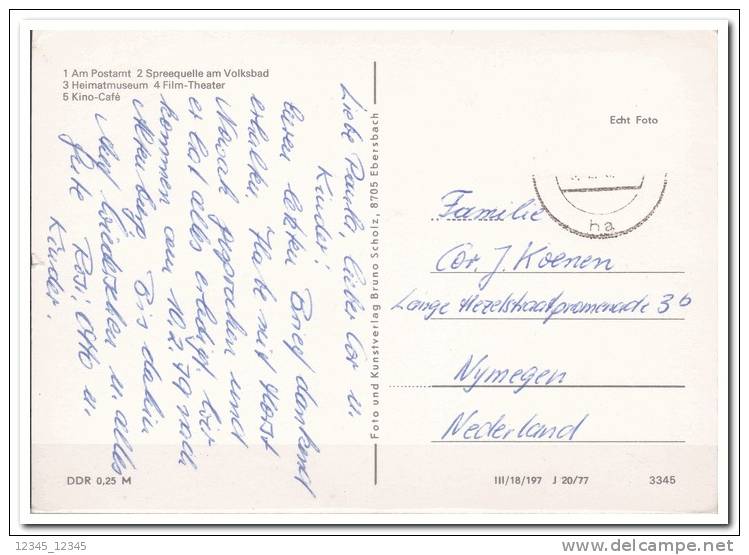 1 Am Postamt 2 Spreequelle am Volksbad
3 Heimatmuseum 4 Film-Theater
5 Kino-Café
Liebe Paula, lieber Cor u.
Kinder!
Euren letzten Brief dankend
erhalten. Habe mit Horst
Nowak gesprochen und
er hat alles erledigt. Wir
kommen am 10.2.79 nach
Bis dahin
Auf Wiedersehen u. alles
Gute Rosi, Otto u.
Kinder.
Foto und Kunstverlag Bruno Scholz, 8705 Ebersbach
Echt Foto
ha
Familie
Cor. J. Koenen
Lange Hezelstraatpromenade 36
Nymegen
Nederland
DDR 0,25 M
III/18/197 J 20/77 3345
12345_12345
delcampe.net